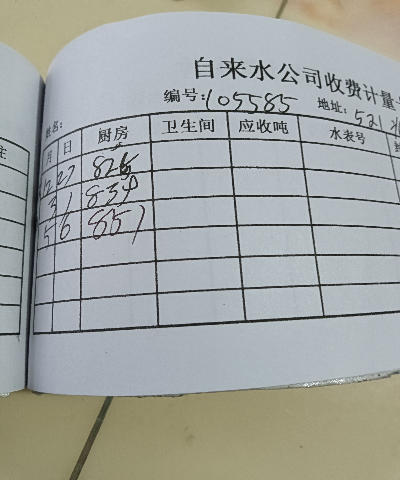 自来水公司收费计量
编号:105585 地址:521
姓名:
主 月 日 厨房 卫生间 应收吨 水表号
12 27 826
3 1 839
5 6 857